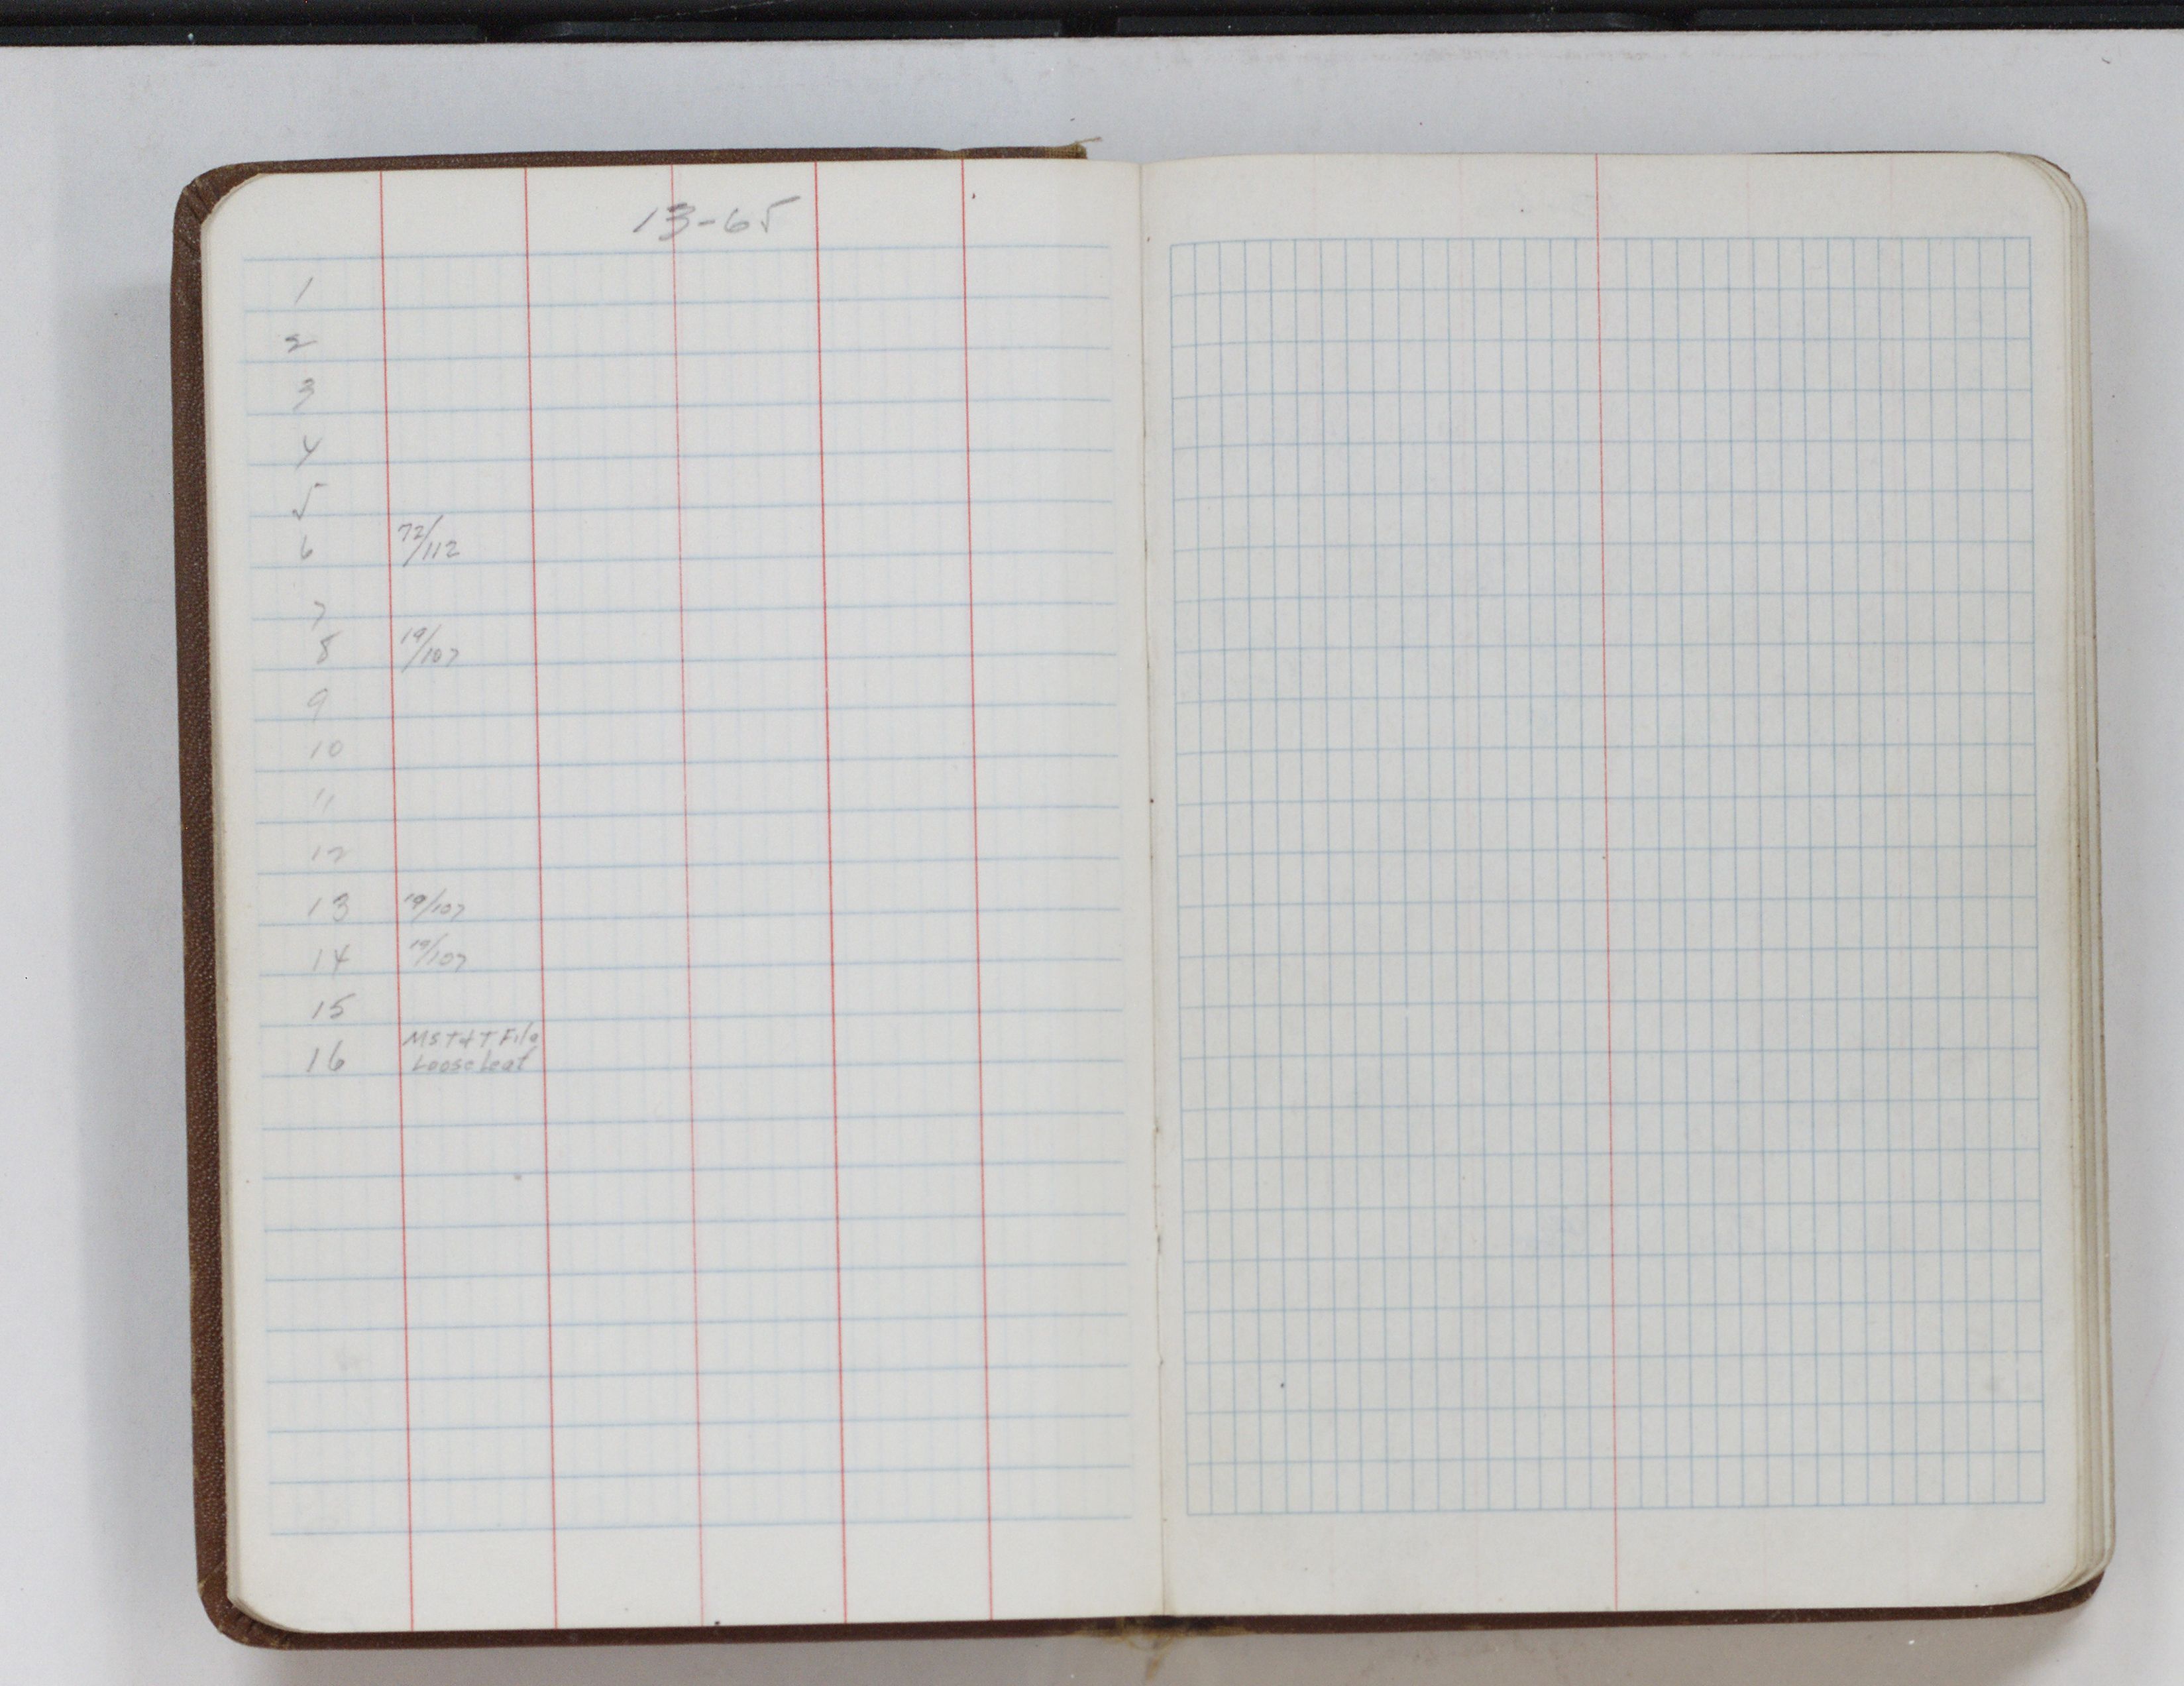 13-65
1
2
3
4
5
6 72/112
7
8 19/107
9
10
11
12
13 19/107
14 19/107
15
MST&T File
16 Loose Leaf